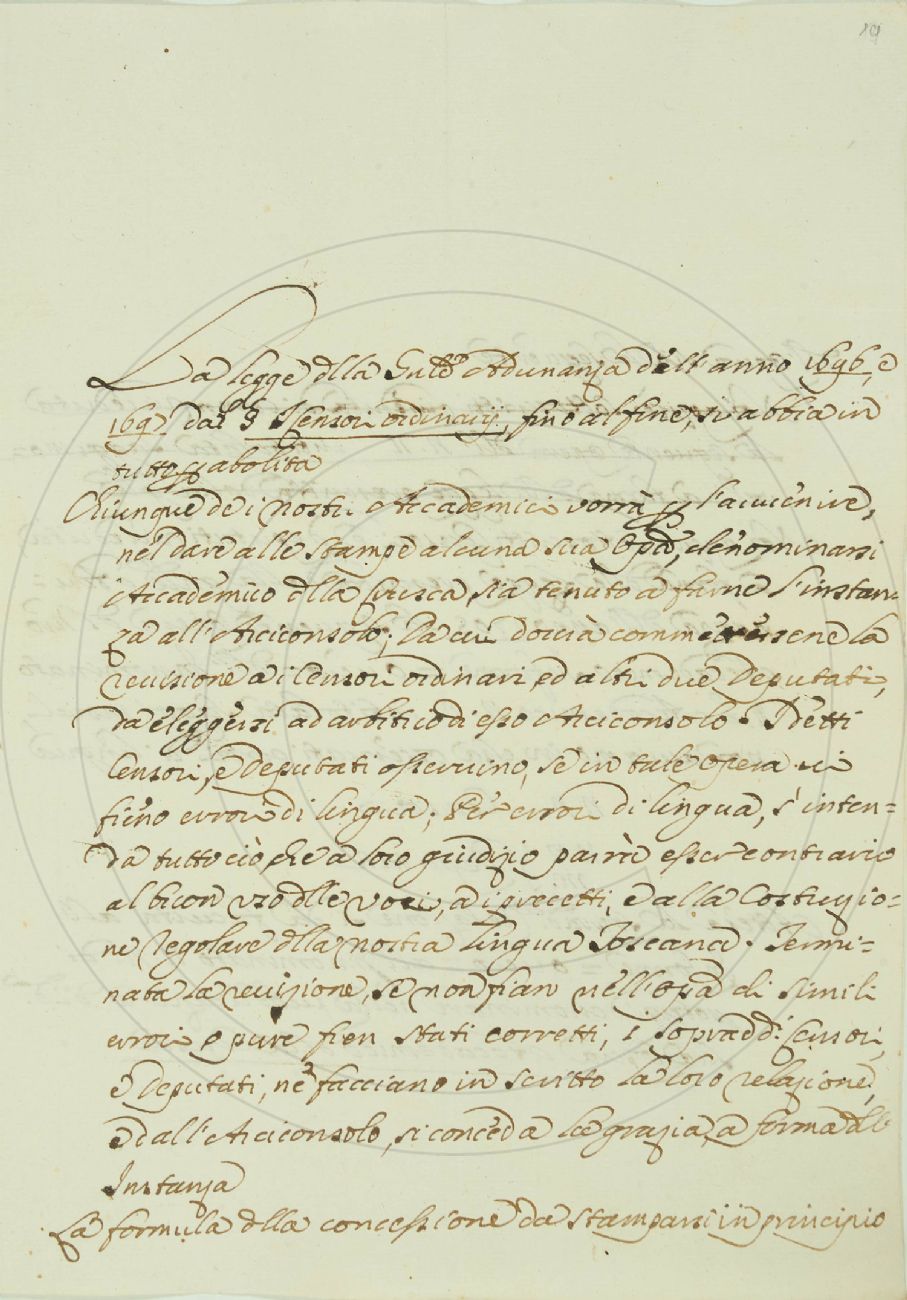 19
La legge dlla Sudª Adunanza dell'anno 1696, e
1697 dal § I Censori ordinarij, fino al fine, si abbia in
tutto p abolita
Chiunque de i nostri Accademici vorrà p l'avvenire,
nel dare alle stampe alcuna sua Opª, denominarsi
Accademico dlla Crusca, sia tenuto a farne l'instan=
za all'Arciconsolo; Da cui dovrà commettersene la
revisione a i Censori ordinari, ed altri due Deputati,
da eleggersi ad arbitrio di esso Arciconsolo. Detti
Censori, e Deputati osservino, se in tale opera vi
sieno errori di lingua; Per errori di lingua, s'inten=
da tutto ciò che a loro giudizio parrà esser contrario
al buon uso dlle voci, a i precetti, e alla Costruzio=
ne regolare dlla nostra Lingua Toscana. Termi=
nata la revisione, se non sian nell'Opª di simili
errori, o pure sien stati corretti, i sopraddi Censori,
e Deputati, ne facciano in scritto la loro relazione,
e dall'Arciconsolo, si conceda la grazia, a forma dll
Instanza
La formula dlla concessione da stamparsi in principio